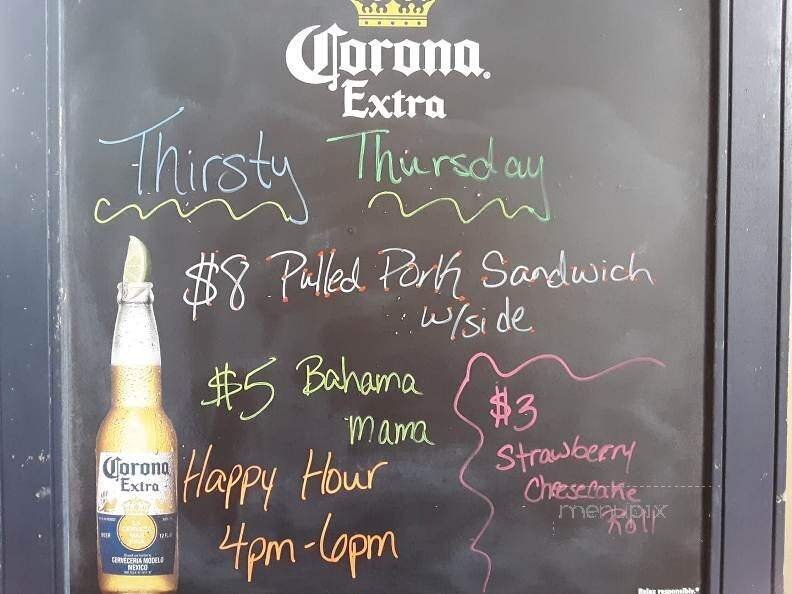 Corona
Extra
Thirsty Thursday
$8 Pulled Pork Sandwich
w/side
$5 Bahama
mama
$3
Strawberry
Cheesecake
Roll
Happy Hour
4pm-6pm
Corona
Extra
CERVECERIA MODELO
MEXICO
menupix
Relax responsibly.